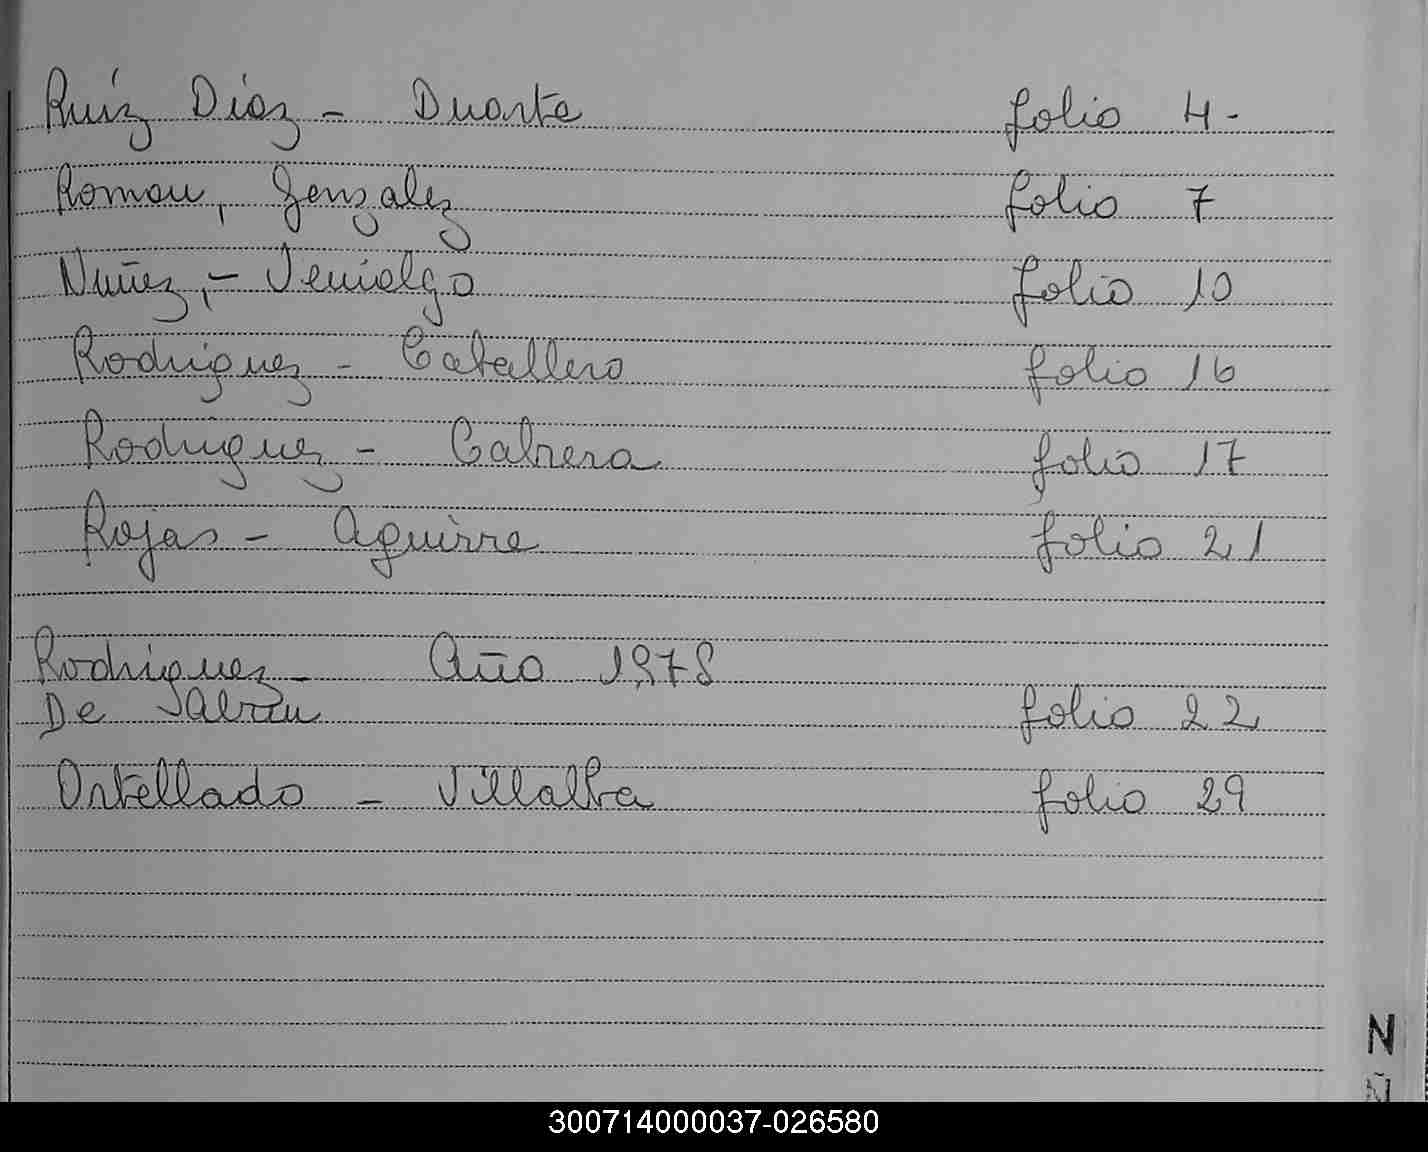 Ruíz Díaz - Duarte folio 4.-
Roman, Gonzalez folio 7
Nuñez,- Venialgo folio 10
Rodriguez - Caballero folio 16
Rodriguez - Cabrera folio 17
Rojas - Aguirre folio 21
Rodriguez - Año 1978
De folio 22
Ortellado - Villalba folio 29
N
Ñ
300714000037-026580